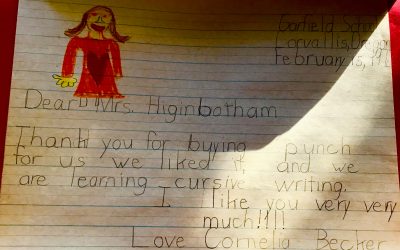 Garfield Scho
Corvallis, Oregon
February 15,
Dear Mrs. Higinbotham
Thank you for buying punch
for us we liked it, and we
are learning cursive writing.
I like you very very
much!!!!
Love Cornelia Becker